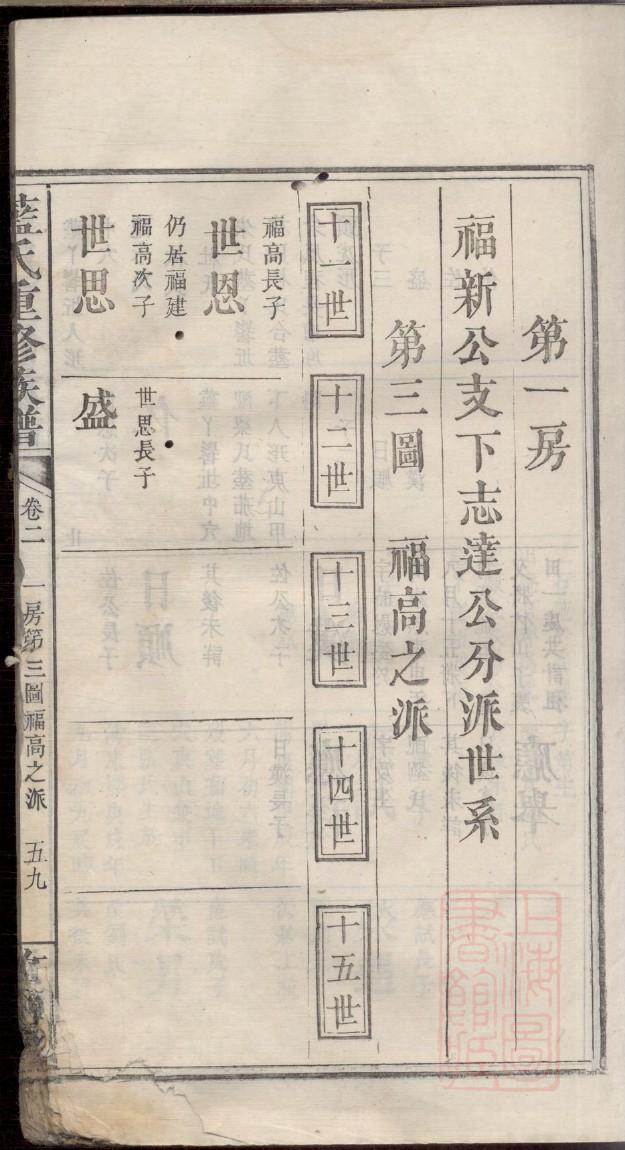 第一房
福新公支下志達公分派世系
第三圖　福高之派
十一世
十二世
十三世
十四世
十五世
福高長子
世恩
仍居福建
福高次子
世思
世思長子
盛
藍氏重修族譜
卷二
一房第三圖福高之派
五九
上海圖書館藏